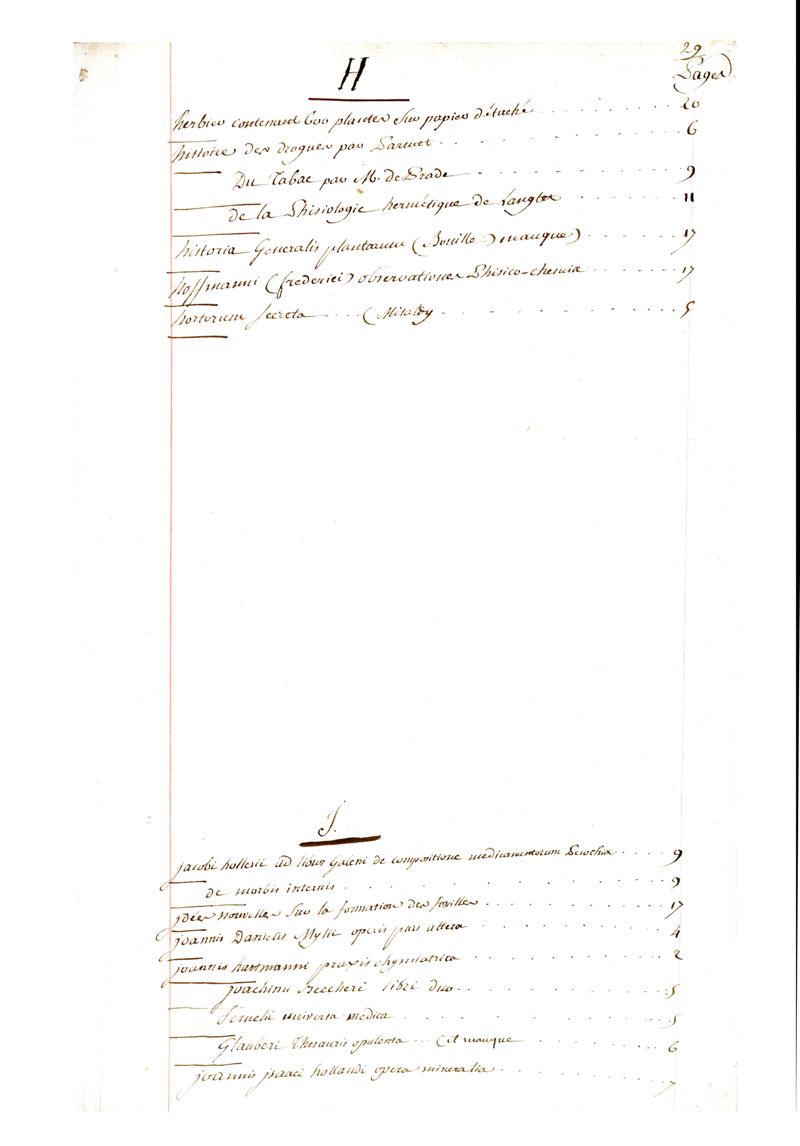 29
Pages
H
herbier contenant 600 plantes sur papier détaché 20
histoire des drogues par 6
Du Tabac par M. de Prade 9
de la Phisiologie hermétique de Langles 11
historia Generalis plantarum (Bouille) manque) 17
hoffmanni (frederici) observationes Phisico-chemia 17
hortorum secreta (Mitaldy 5
J.
jacobi hollerii ad libros Galeni de compositione medicamentorum 9
de morbis internis 9
jdées nouvelles sur la formation des fossilles 17
joannis Danielis Mylii operis pars altera 4
joannis hartmanni praxis chymiatrica 2
joachimi Beccheri libri duo 5
fernelii universa medica 5
Glauberi Thesauris opulenta (il manque 6
joannis jsaaci hollandi opera mineralia 7